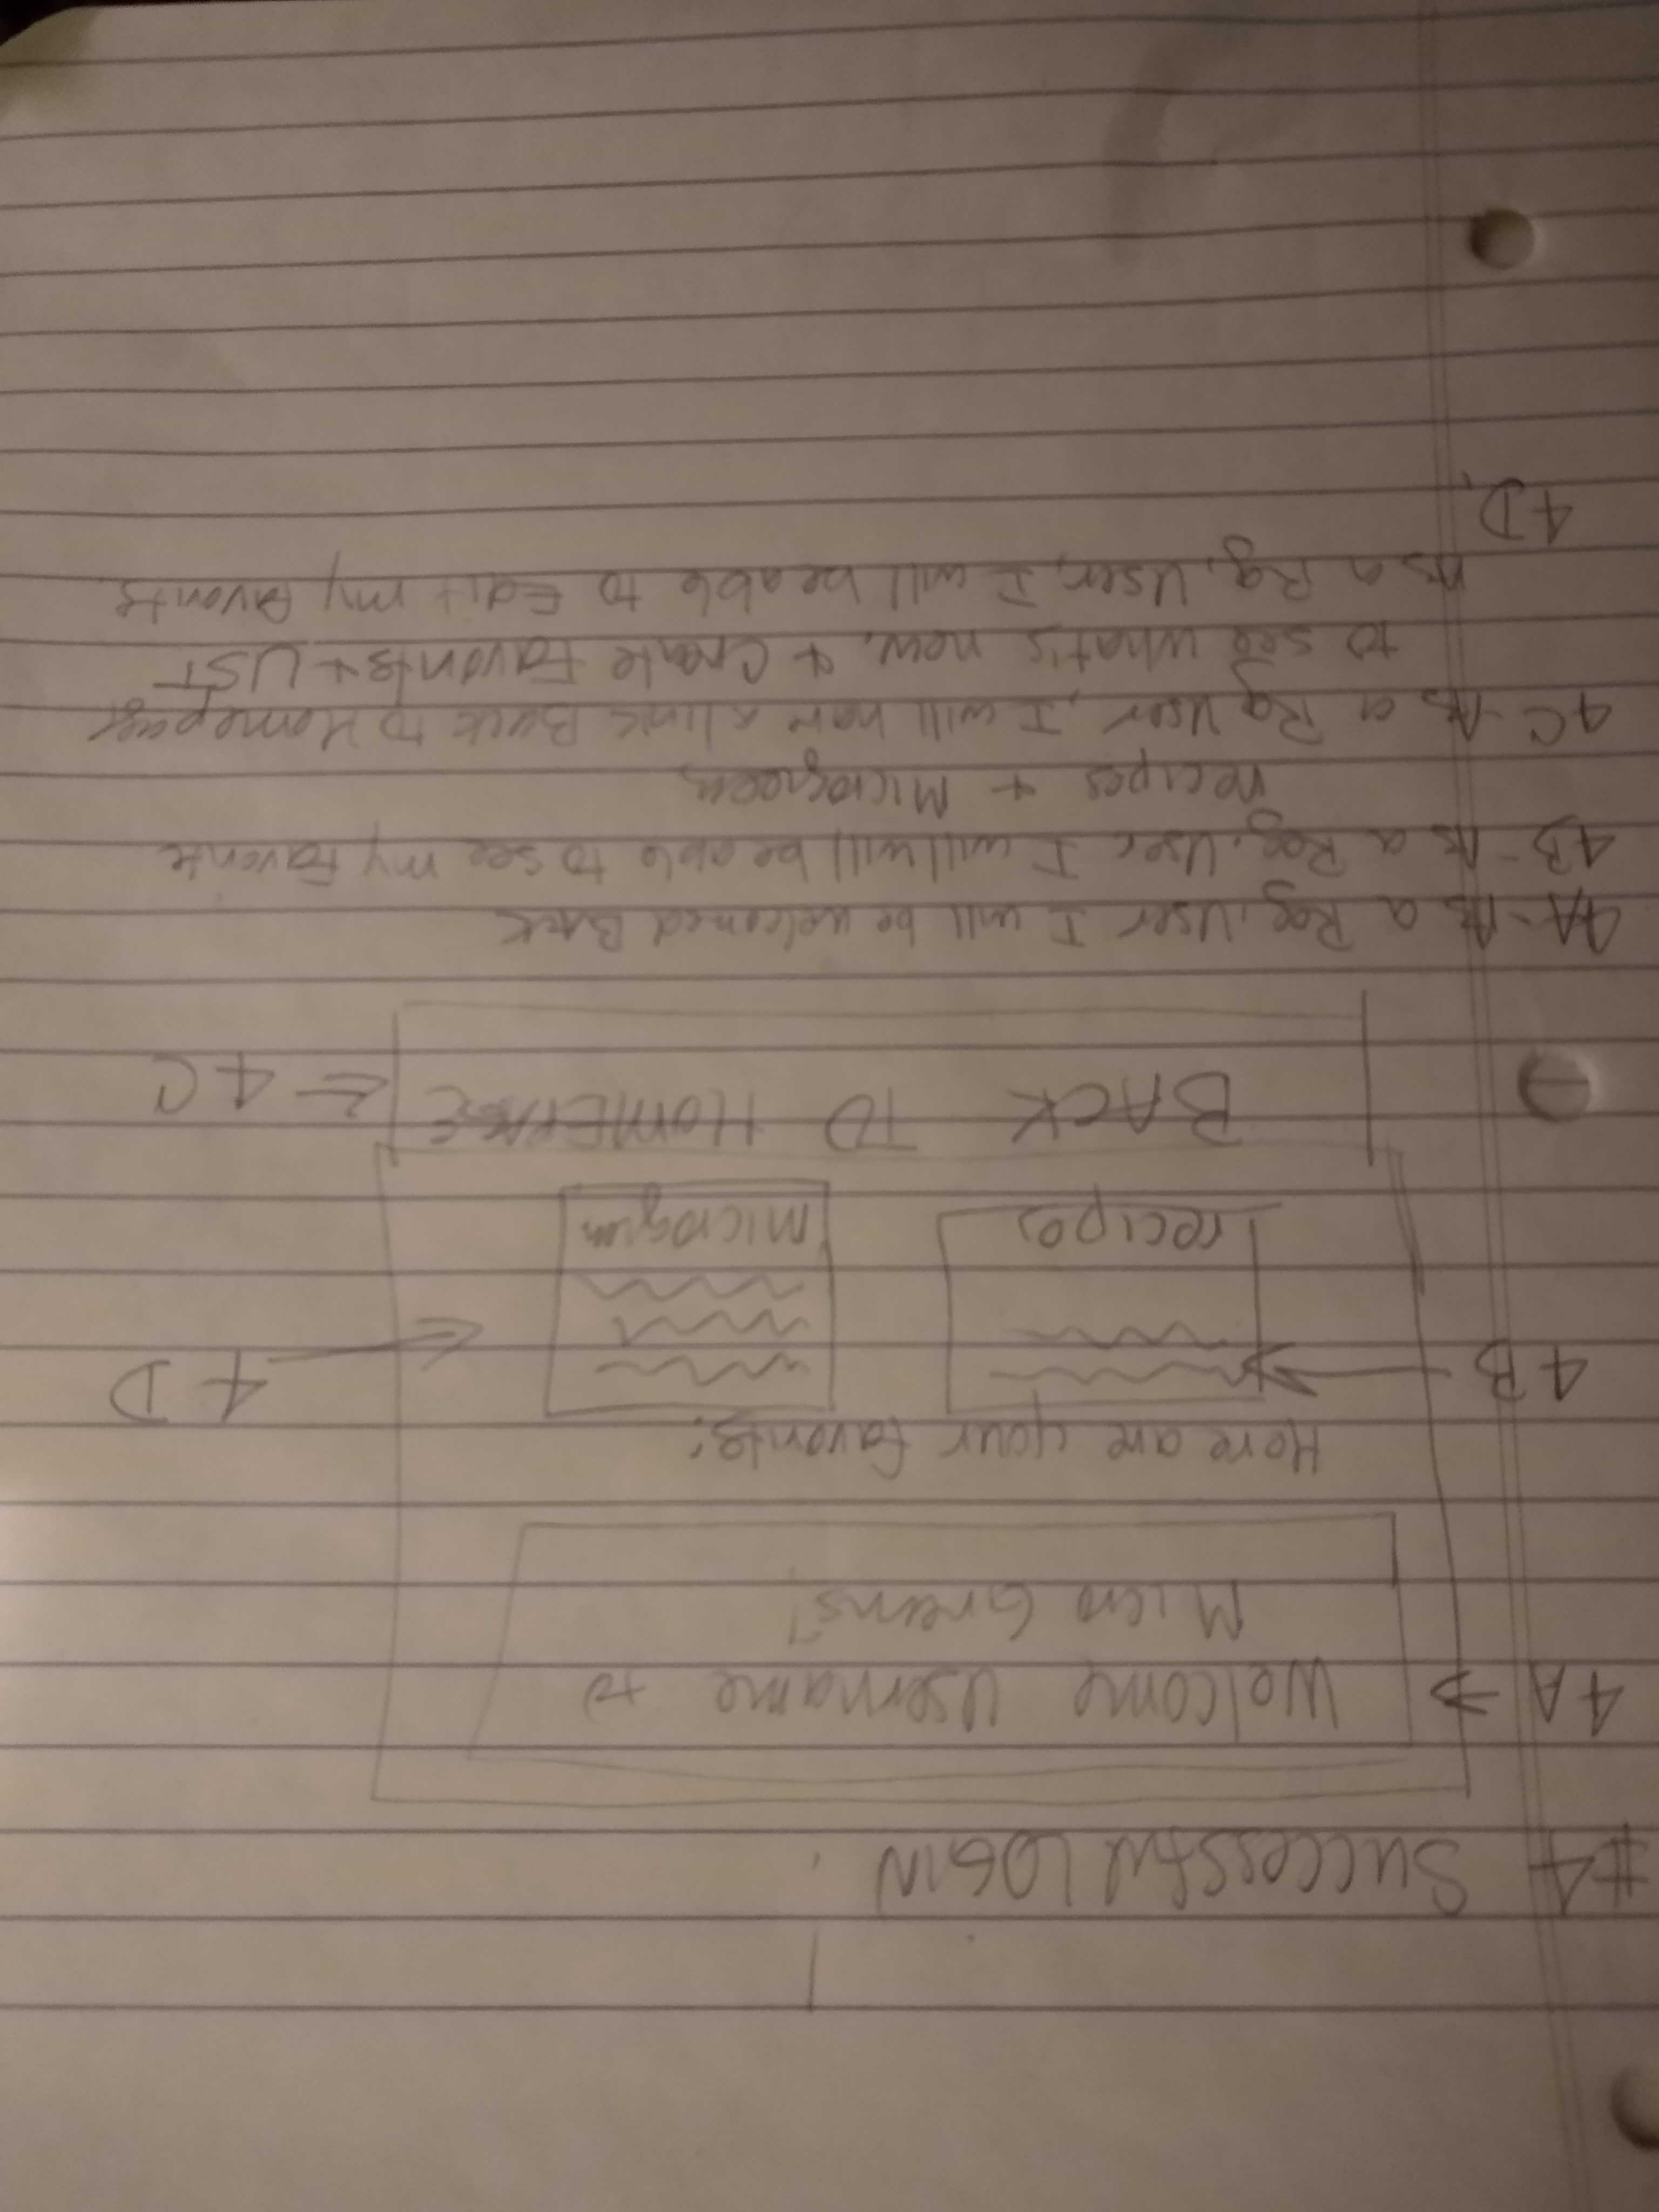 #4 SUCCESSFUL LOGIN
4A → Welcome Username to
Micro Greens"
Here are your favorits:
4B
4D
recipes microgren
BACK TO HOMEPAGE ⇐ 4C
4A - As a Reg. User I will be welcomed Back
4B - As a Reg. User I will will be able to see my Favorite
recipes + Microgreens
4C - As a Rg User, I will have a link Back to Homepage
to see what's new, + Create Favorits + LIST
As a Rg. User, I will be able to Edit my Favorits.
4D.